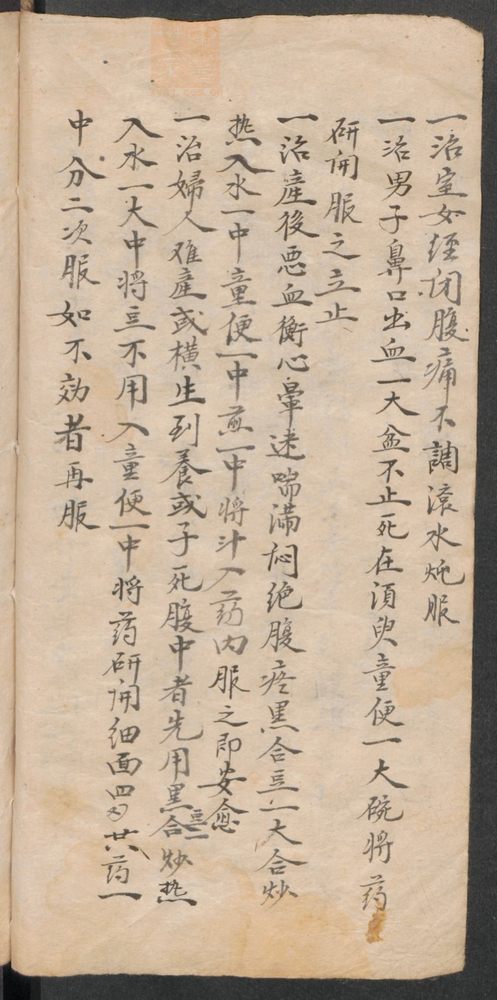 一治室女經闭腹痛不調滚水炖服
一治男子鼻口出血一大盆不止死在須臾童便一大碗將药
研開服之立止
一治產後恶血衡心暈迷喘满闷绝腹疼黑合豆一大合炒
热入水一中童便一中煎一中將汁入药内服之即安愈
一治婦人难產或横生到養或子死腹中者先用黑豆一合炒热
入水一大中將豆不用入童便一中將药研開细面四
中分二次服如不効者再服